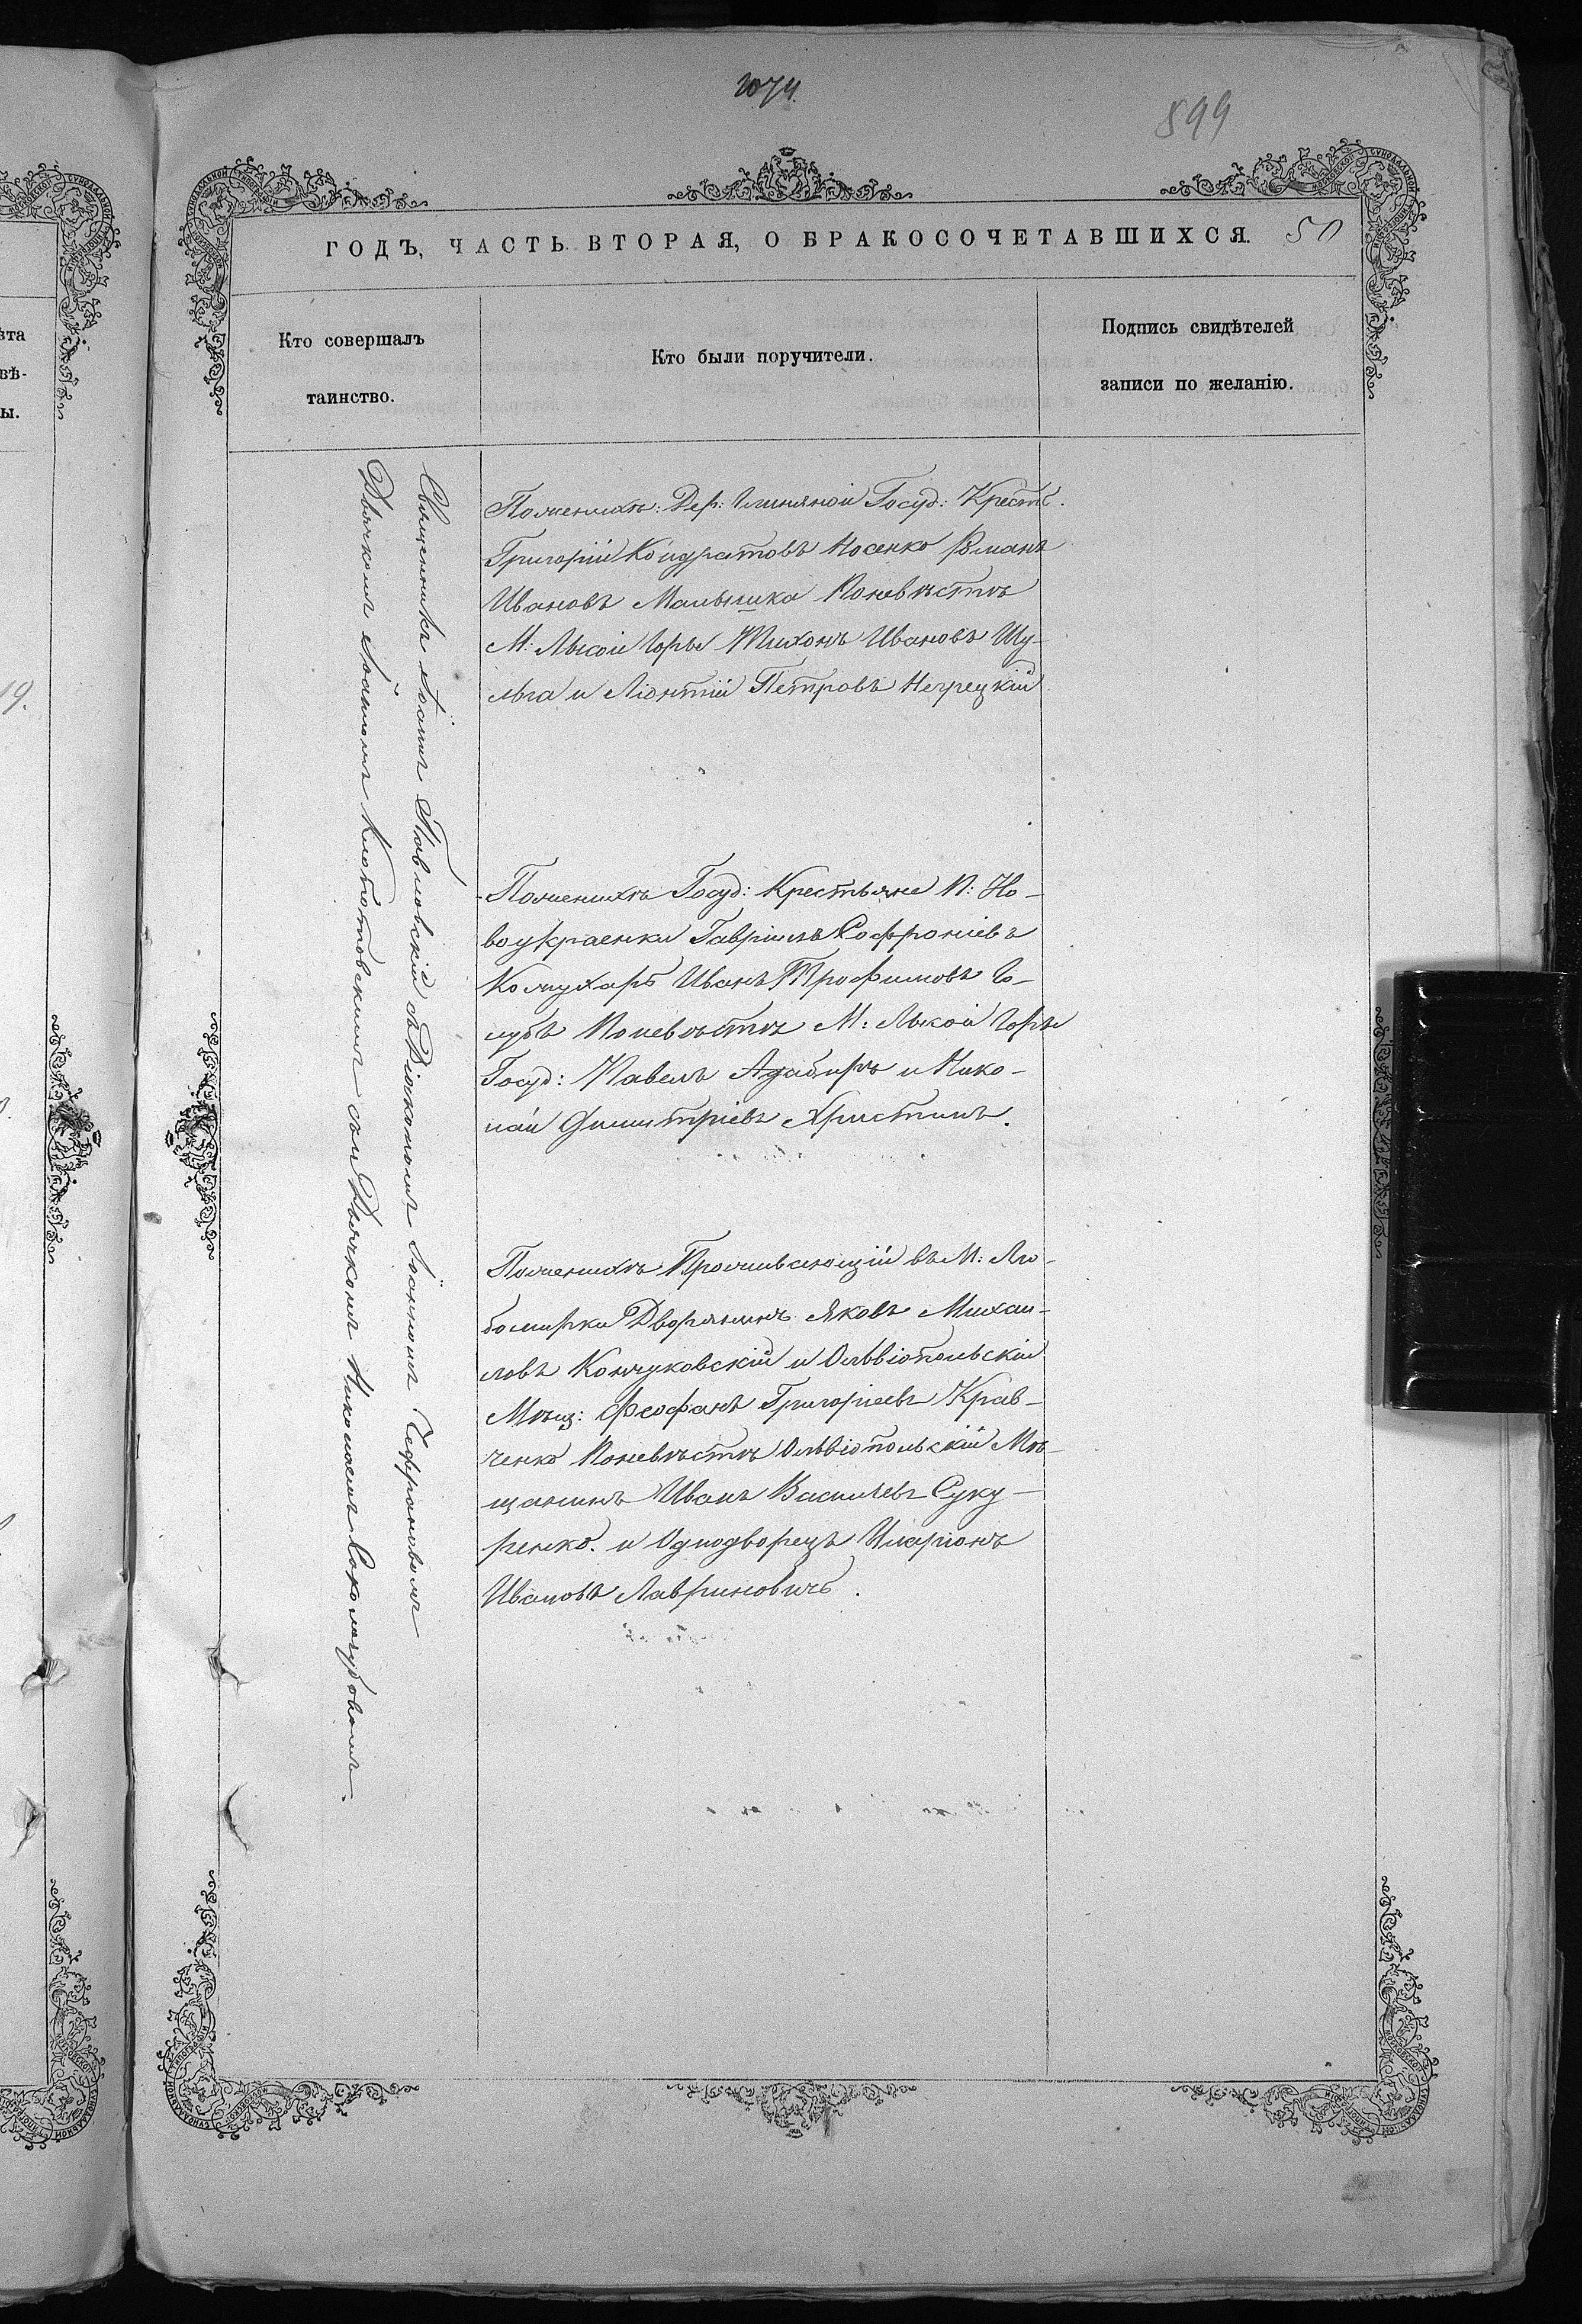 1074.
899
ГОДЪ, ЧАСТЬ ВТОРАЯ, О БРАКОСОЧЕТАВШИХСЯ. 50
Кто совершалъ
таинство.
Кто были поручители.
Подпись свидѣтелей
записи по желанію.
Священникъ Іоаннъ Павловскій съ Діакономъ Іоанномъ Сафроновымъ
Дьячкомъ Іоанномъ съ и Дьячкомъ Николаемъ
Поженихѣ: Дер: Глиняной Госуд: Крест.
Григорій Кондратовъ Носенко Романъ
Ивановъ Малышка Поневѣстѣ
М: Лысой Горы Тихонъ Ивановъ Шу-
льга и Ліонтій Петровъ Негрецкій
Поженихѣ Госуд: Крестьяне П: Но-
воукраенки Гавріилъ Софроніевъ
Кожухарь Иванъ Трофимовъ Го-
лубъ Поневѣстѣ М: Лысой Горы
Госуд: Павелъ и Нико-
лай Димитріевъ Христинъ.
Поженихѣ Проживающій въ М: Лю-
бомирки Дворянинъ Яковъ Михаи-
ловъ Кончуковскій и Ольвіопольскій
Мѣщ: Феофанъ Григоріевъ Крав-
ченко Поневѣстѣ Ольвіопольскій Мѣ-
щанинъ Иванъ Васильевъ Суку-
ренко. и Однодворецъ Иларіонъ
Ивановъ Лавриновичъ.